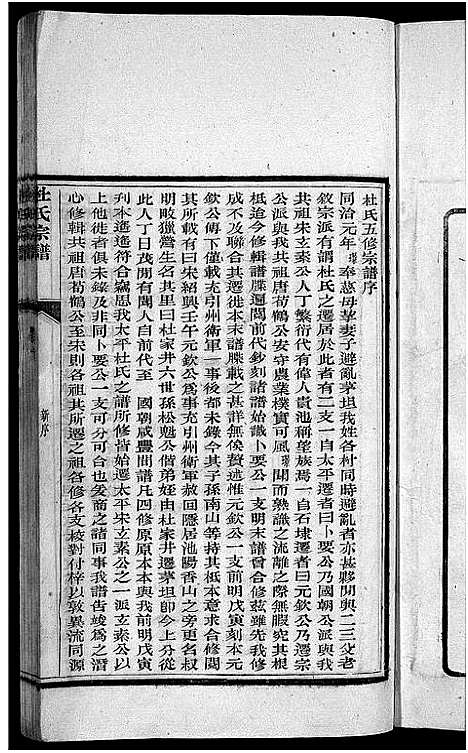 杜氏五修宗譜序
同治元年奉慈母挈妻子避亂茅坦我姓各村同時避亂者亦甚夥閒與二三父老
敘宗派有謂杜氏之遷居於此者有二支一自太平遷者曰卜要公乃國朝公派與我
共祖宋玄素公人丁繁衍代有偉人貴池稱望族焉一自石埭遷者曰元欽公乃遷宗
公派與我共祖唐荀鶴公安守農業樸實可風聞而熟識之流離之際無暇究其根
柢迨今修輯譜牒遍閱前代鈔刻諸譜始識卜要公一支明末譜曾合修茲雖先我修
成不及聯合其遷徙本末譜牒載之甚詳無俟贅述惟元欽公一支前明戊寅刻本元
欽公傳下僅載充引州衛軍一事後都未錄今其子孫南山等持其柢本意求合修閱
其所載有曰宋紹興壬午元欽公為事充引州衛軍赦回隱居池陽香山之旁更名叔
明畋獵營生名其里曰杜家井六世孫松魁公偕弟姪由杜家井遷茅坦卽今上分從
此人丁日茂閒有聞人自前代至　國朝咸豐間譜凡四修原原本本與我前明戊寅
刋本遙遙符合竊思我太平杜氏之譜所修皆始遷太平宋玄素公之一派玄素公以
上他徙者俱未錄及非同卜要公一支可分可合也爰商之諸同事我譜告竣為之潛
心修輯共祖唐荀鶴公至宋則各祖其所遷之祖各修各支校對付梓以敦異流同源
杜氏宗譜
新序